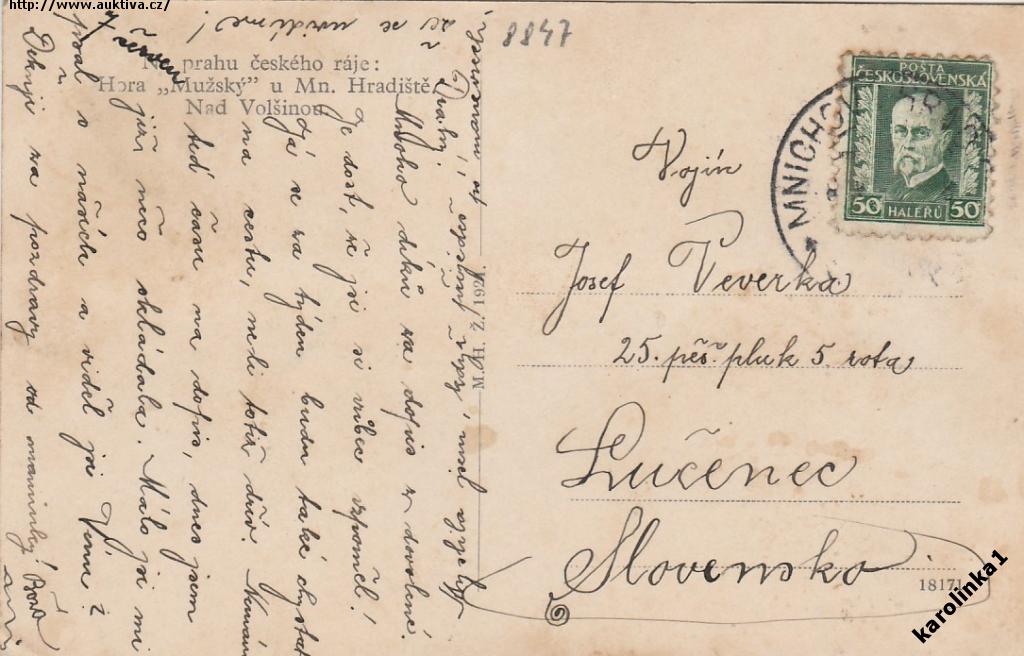 http://www.auktiva.cz/
8847
Na prahu českého ráje:
Hora „Mužský" u Mn. Hradiště.
Nad Volšinou
M. H. Ž. 192
POŠTA
ČESKOSLOVENSKÁ
50 HALÉŘŮ 50
MNICHOV
Vojín
Josef Veverka
25. pěš. pluk 5. rota
Lučenec
Slovensko
18171
karolinka1
že se uvidíme!
Drahý,
Mnoho díků za dopis z dovolené.
Je dost, že jsi si vůbec vzpoměl!
Já se za týden budu také chystat
na cestu, neli totiž dřív. Nemám
teď času na dopis, dnes jsem
již něco skládala. Málo jsi mi
psal o našich a viděl jsi Vimu ž
Děkuji za pozdravy od maminky!
červen